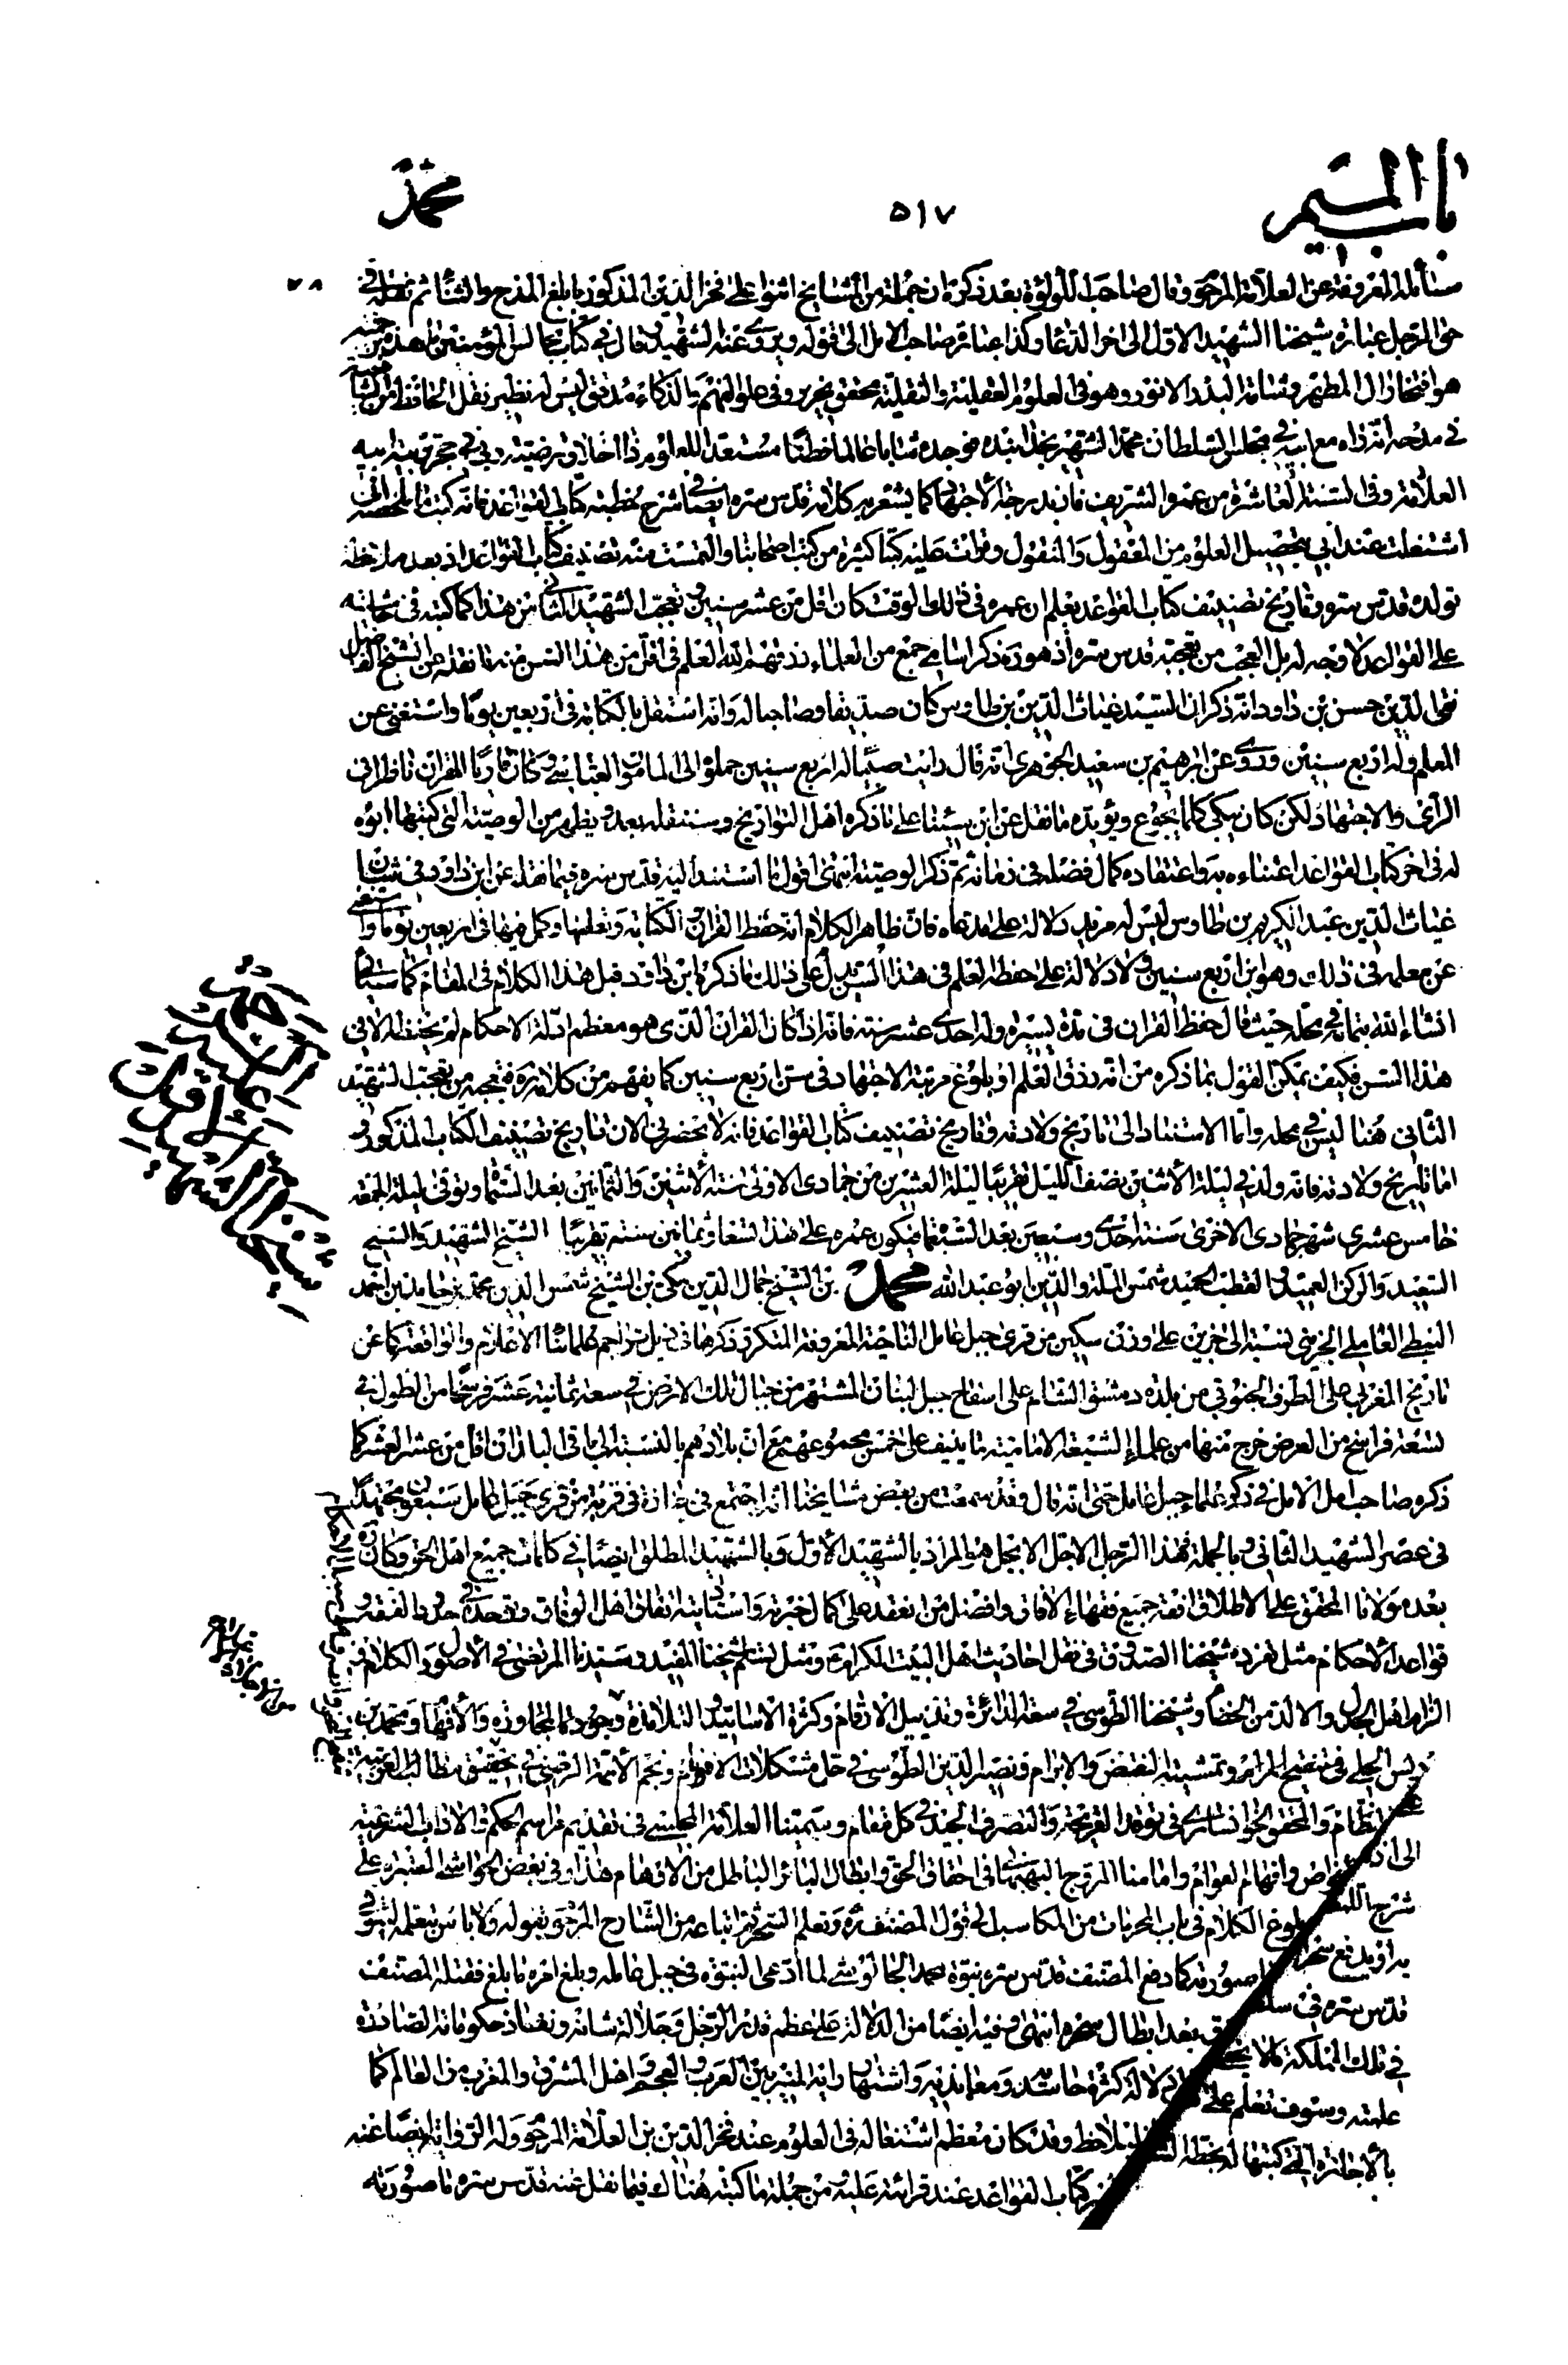 باب الميم
٥١٧
محمد
مسألة المعروفة عن العلامة المرحوم وقال صاحب اللؤلؤة بعد ذكره ان جملة من المشايخ اثنوا على فخر الدين المذكور بابلغ المدح والثناء ثم نقله في
حق الرجل عبارة شيخنا الشهيد الاول الى اخر الدعاء وكذا عبارة صاحب الامل الى قوله ويروى عنه الشهيد وقال في كتاب مجالس المؤمنين
هو افتخار ال المطهر وشامة البدر الانور وهو في العلوم العقلية والنقلية محقق نحرير وفي علو الفهم والذكاء مدقق ليس له نظير نقل الحافظ من الشا
في مدحه انه راه مع ابيه في مجلس السلطان محمد الشهير بخدابنده فوجده شابا عالما فطنا مستعدا للعلوم ذا اخلاق رضية ربي في حجر تربية ابيه
العلامة وفي السنة العاشرة من عمره الشريف فاز بدرجة الاجتهاد كما يشعر به كلامه قدس سره ايضا في شرح خطبة كتاب القواعد فانه كتب ما ملخصه اني
اشتغلت عند ابي بتحصيل العلوم من المعقول والمنقول وقرات عليه كتبا كثيرة من كتب اصحابنا والتمست منه تصنيف كتاب القواعد اذ بعد ملاحظة
تولده قدس سره وتاريخ تصنيف كتاب القواعد يعلم ان عمره في ذلك الوقت كان اقل من عشر سنين وتعجب الشهيد الثاني من هذا كما كتبه في حاشيته
على القواعد لا وجه له بل العجب من تعجبه قدس سره اذ هو ره ذكر اسامي جمع من العلماء رزقهم الله العلم في اقل من هذا السن منهم ما نقله عن الشيخ الفاضل
تقي الدين حسن بن داود انه ذكر ان السيد غياث الدين بن طاوس كان صديقا وصاحبا له وانه استقل بالكتابة في اربعين يوما واستغنى عن
المعلم وله اربع سنين وروى عن ابرهيم بن سعيد الجوهري انه قال رايت صبيا له اربع سنين حملوه الى المامون العباسي وكان قاريا للقران ناظرا في
الراي والاجتهاد لكن كان يبكي كلما يجوع ويؤيده ما نقل عن ابن سينا على ما ذكره اهل التواريخ وسننقله بعد ويظهر من الوصية التي كتبها ابوه
له في اخر كتاب القواعد اعتناءه به واعتقاده كمال فضله في زمانه ثم ذكر الوصية انتهى اقول ما استند اليه قدس سره فيما نقله عن ابن داود في شان
غياث الدين عبد الكريم بن طاوس ليس له مزيد دلالة على مدعاه فان ظاهر الكلام انه حفظ القران والكتابة وتعلمها وكمل فيها في اربعين يوما واستغنى
عن معلمه في ذلك وهو ابن اربع سنين ولا دلالة على حفظه العلم في هذا السن يدل على ذلك ما ذكره ابن داود قبل هذا الكلام في المقام كما سياتي
انشاء الله بتمامه في محله حيث قال حفظ القران في مدة يسيرة وله احدى عشر سنة فانه اذا كان القران الذي هو معظم ادلة الاحكام لم يحفظه الا في
هذا السن فكيف يمكن القول بما ذكره من انه رزق العلم او بلوغ مرتبة الاجتهاد في سن اربع سنين كما يفهم من كلامه ره فتعجبه من تعجب الشهيد
الثاني هنا ليس في محله واما الاستناد الى تاريخ ولادته وتاريخ تصنيف كتاب القواعد فانه لا يحضرني الان تاريخ تصنيف الكتاب المذكور و
اما تاريخ ولادته فانه ولد في ليلة الاثنين نصف الليل تقريبا ليلة العشرين من جمادى الاولى سنة الاثنين والثمانين بعد الستما وتوفي ليلة الجمعة
خامس عشري شهر جمادى الاخرى سنة احدى وسبعين بعد السبعما فيكون عمره على هذا تسعا وثمانين سنة تقريبا الشيخ الشهيد والشيخ
السعيد والركن العميد والقطب الحميد شمس الملة والدين ابو عبد الله محمد بن الشيخ جمال الدين مكي بن الشيخ شمس الدين محمد بن حامد بن احمد
النبطي العاملي الجزيني نسبة الى جزين على وزن سكين من قرى جبل عامل الناحية المعروفة المتكرر ذكرها في ذيل تراجم علمائنا الاعلام والواقعة كما عن
تاريخ المغربي على الطرف الجنوبي من بلدة دمشق الشام على اسفاح جبل لبنان المشتهر من جبال تلك الارض في سعة ثمانية عشر فرسخا من الطول في
تسعة فراسخ من العرض خرج منها من علماء الشيعة الامامية ما ينيف على خمس مجموعهم مع ان بلادهم بالنسبة الى باقي البلدان اقل من عشر العشر كما
ذكره صاحب امل الامل في ذكر علماء جبل عامل حتى انه قال وقد سمعت من بعض مشايخنا انه اجتمع في جنازة في قرية من قرى جبل عامل سبعون مجتهدا
في عصر الشهيد الثاني وبالجملة فهذا الرجل الاجل الابجل هو المراد بالشهيد الاول وبالشهيد المطلق ايضا في كلمات جميع اهل الحق وكان ره
بعد مولانا المحقق على الاطلاق افقه جميع فقهاء الافاق وافضل من انعقد على كمال خبرته واستاديته اتفاق اهل الوفاق وتوحده في حدود الفقه و
قواعد الاحكام مثل تفرد شيخنا الصدوق في نقل احاديث اهل البيت الكرام ع ومثل تسلم شيخنا المفيد وسيدنا المرتضى في الاصول والكلام و
الزام اهل الجدل والالد من الخصام وشيخنا الطوسي في سعة الدائرة وتذييل الارقام وكثرة الاساتيد والتلامذة وجودة المحاورة والافهام ومحمد بن
ادريس الحلي في تنقيح المرام وتمشية النقض والابرام ونصير الدين الطوسي في حل مشكلات الانام ونجم الائمة الرضي في تحقيق مطالب العربية
النظام والمحقق الخوانساري في توقد القريحة والتصرف الجيد في كل مقام وسمينا العلامة المجلسي في تقديم مراسم الحكم والاداب الشرعية
الى اذ الخواص وافهام العوام وامامنا المروج البهبهاني في احقاق الحق وابطال الباطل من الاوهام هذا وفي بعض الحواشي المعتبرة على
شرح اللمعة بلوغ الكلام في باب المحرمات من المكاسب الى قول المصنف ره وتعلم السحر ثم اتباعه من الشارح المرحوم بقوله ولا باس بتعلمه ليتوقى
به او يدفع سحر ما صورته كما دفع المصنف قدس سره نبوة محمد الجالوشي لما ادعى النبوة في جبل عامله وبلغ امره ما بلغ فقتله المصنف
قدس سره في سلطنة برقوق بعد ابطال سحره انتهى وفيه ايضا من الدلالة على عظم قدر الرجل وجلالة شانه ونفاذ حكوماته الصادرة
في تلك المملكة ما لا يخفى دلالة كثرة حاسديه ومعانديه واشتهار راية المنير بين العرب والعجم واهل المشرق والمغرب من العالم كما
علمته وسوف تعلم على فليلاحظ وقد كان معظم اشتغاله في العلوم عند فخر الدين بن العلامة المرحوم وله الرواية ايضا عنه
بالاجازة التي كتبها له بخطه كتاب القواعد عند قرائته عليه من جملة ما كتبه هناك فيما نقل عنه قدس سره ما صورته